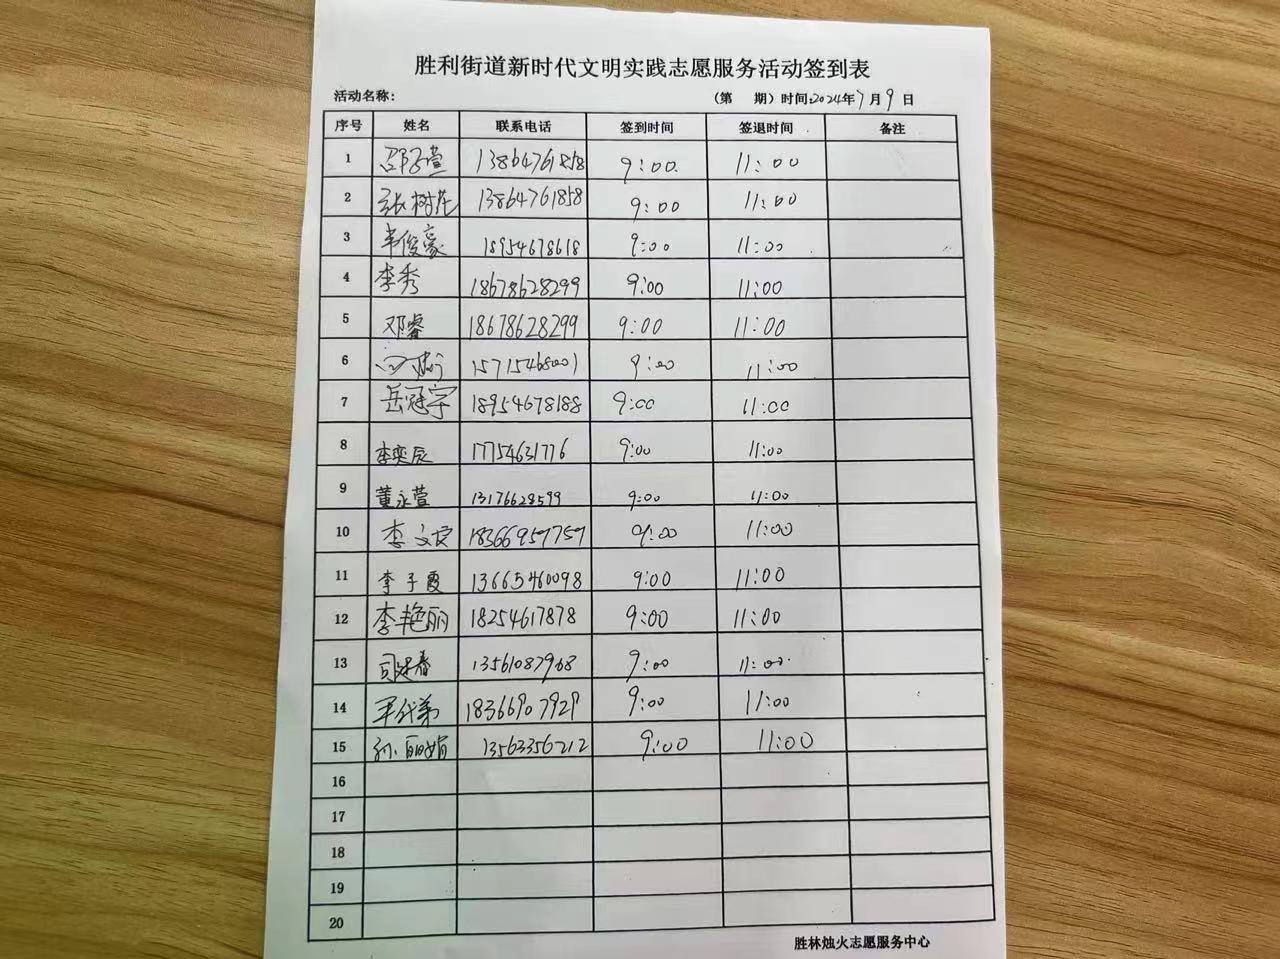 胜利街道新时代文明实践志愿服务活动签到表
活动名称: (第 期) 时间:2024年7月9日
序号 姓名 联系电话 签到时间 签退时间 备注
1 邵子萱 13864761858 9:00 11:00
2 张树花 13864761858 9:00 11:00
3 俊豪 18954678618 9:00 11:00
4 李秀 18678628299 9:00 11:00
5 邓睿 18678628299 9:00 11:00
6 15715468001 9:00 11:00
7 岳冠宇 18954678188 9:00 11:00
8 李奕辰 17754631776 9:00 11:00
9 董永萱 13176628599 9:00 11:00
10 李文 18366957757 9:00 11:00
11 李子霞 13665460098 9:00 11:00
12 李艳丽 18254617878 9:00 11:00
13 司建春 13561087968 9:00 11:00
14 18366907929 9:00 11:00
15 孙丽娟 13563356212 9:00 11:00
16
17
18
19
20
胜林烛火志愿服务中心